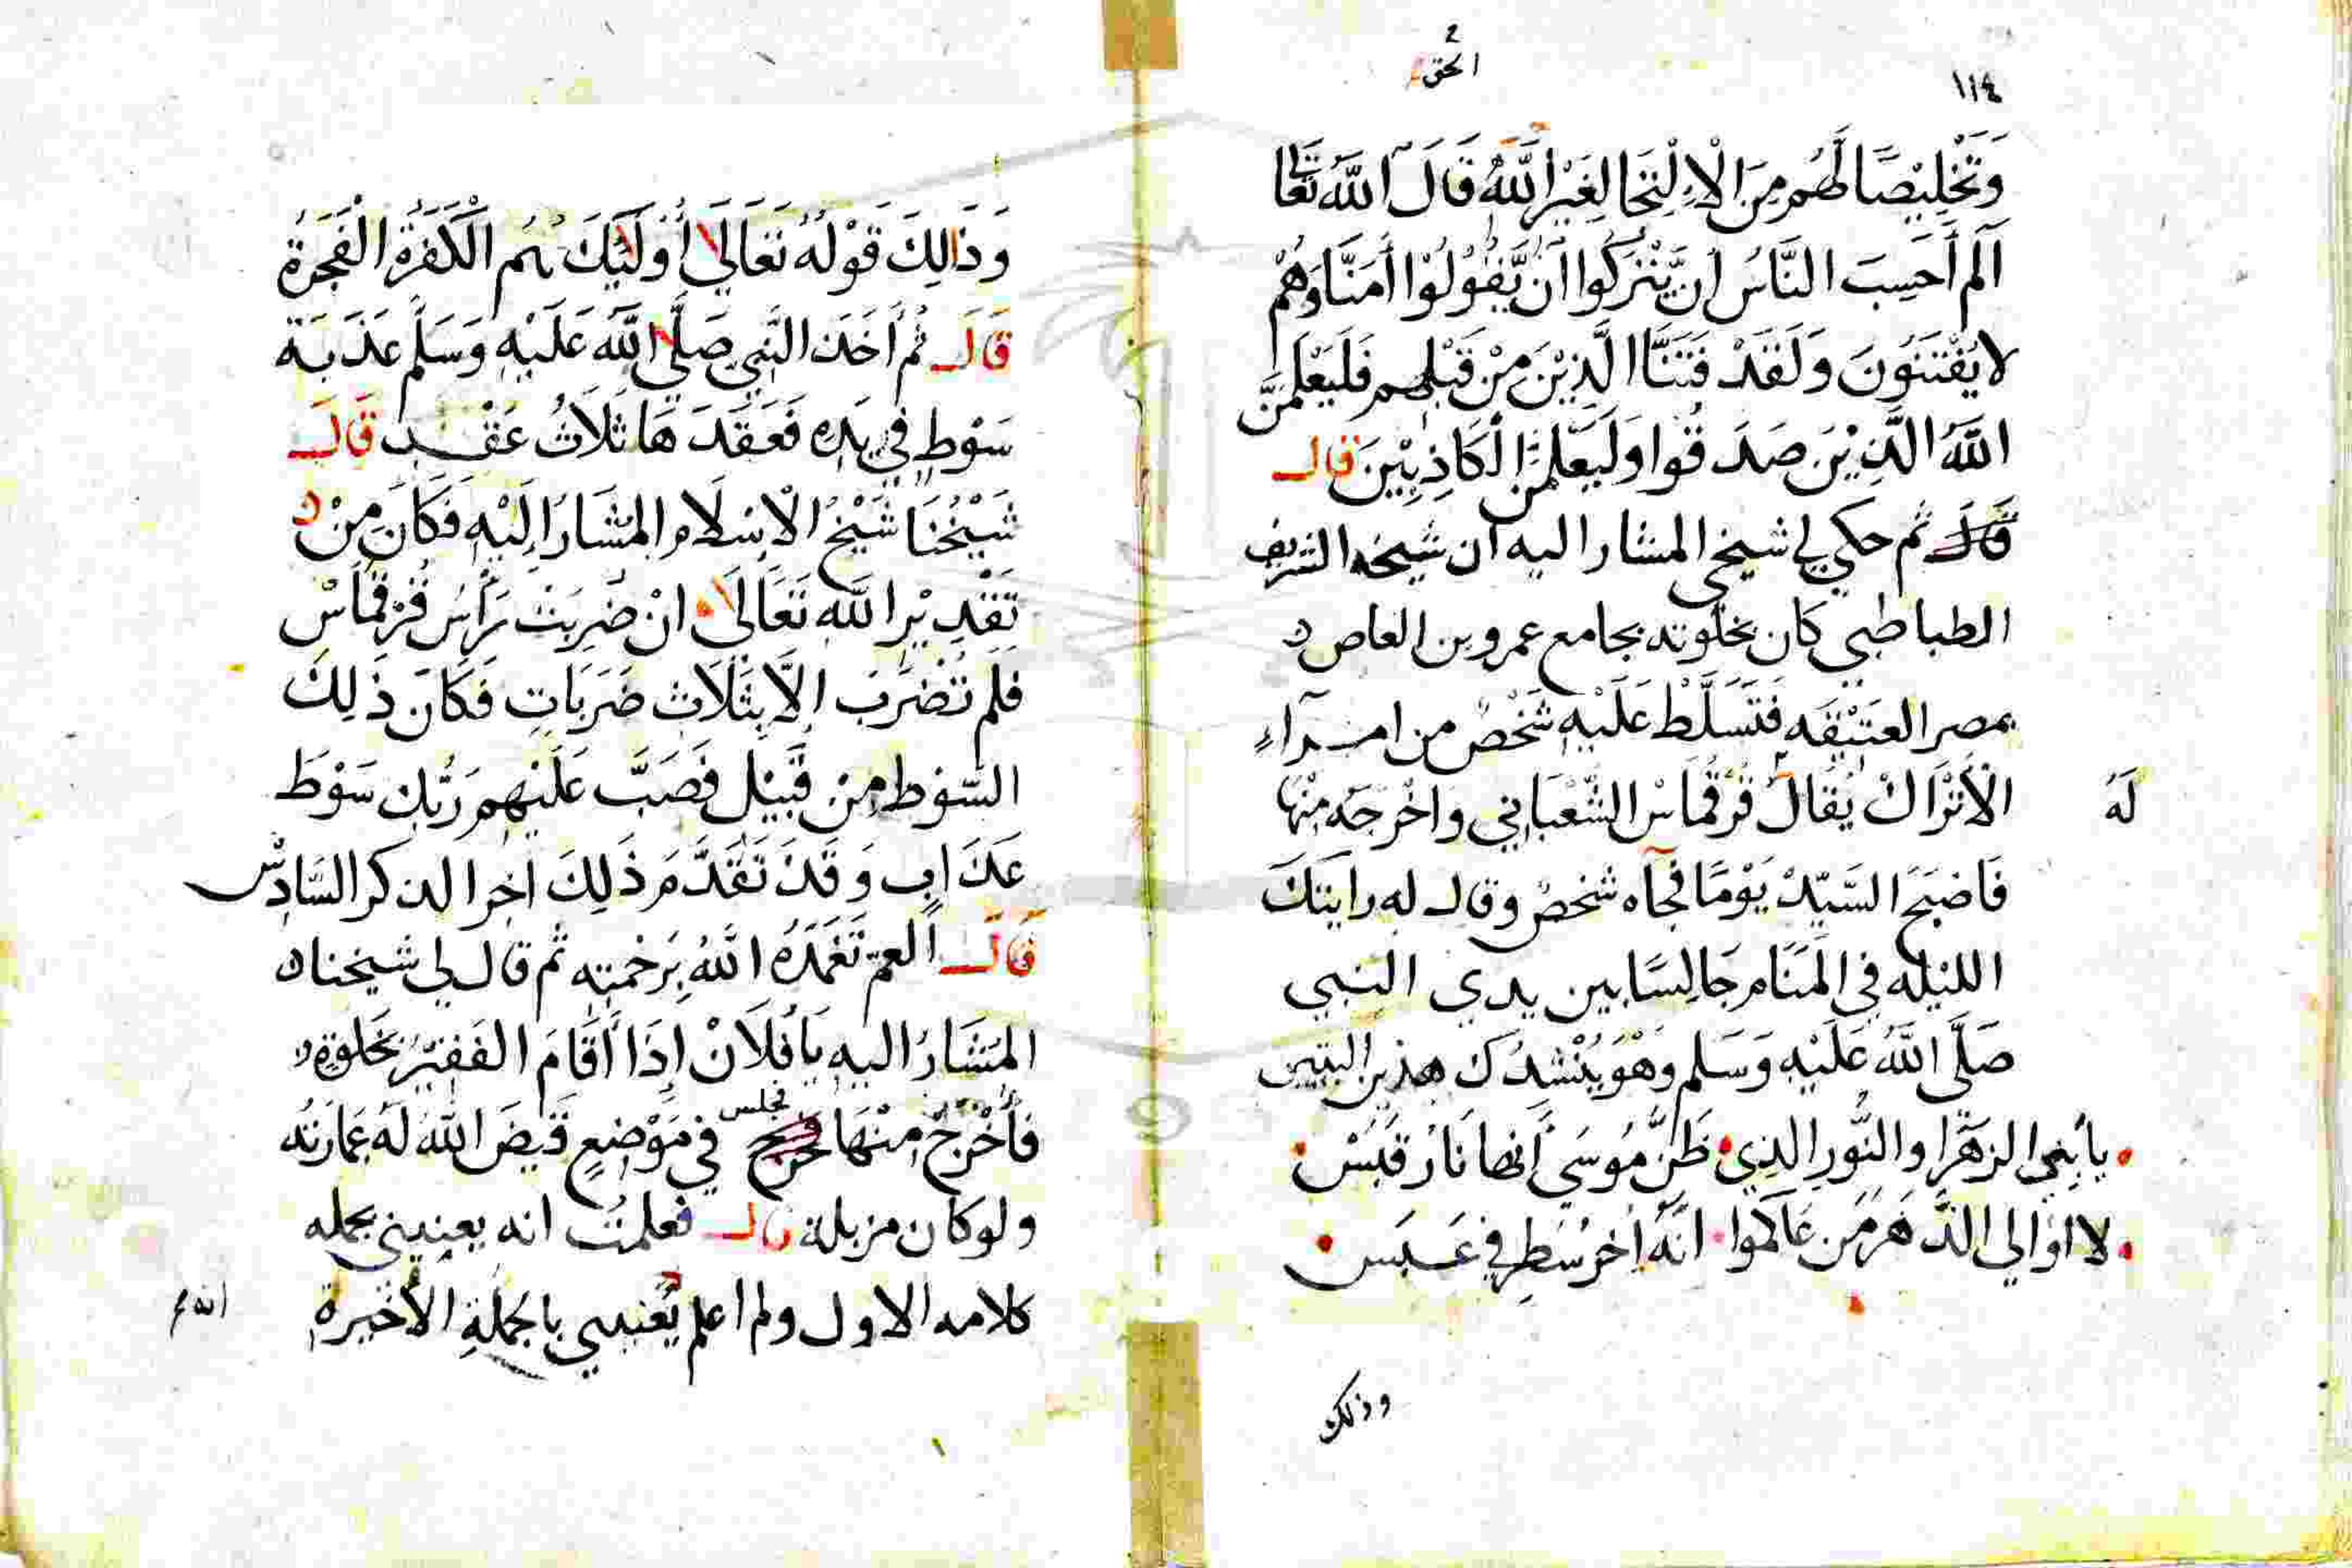 ١١٤
الحق
وَتَخْلِيْصًا لَهُم مِنَ الْاِلْتِجَا لِغَيْرِ اللَّهُ قَالَ اللَّهُ تَعَالَى
آلم أَحَسِبَ النَّاسُ اَنْ يَّتْرَكُوا اَنْ يَّقُوْلُوْا أمَنَّا وَهُمْ
لا يُفْتَنُوْنَ وَلَقَدْ فَتَنَّا الَّذِيْنَ مِنْ قَبْلِهم فَلَيَعْلَمَنَّ
اللَّهُ الَّذِيْنَ صَدَقُوا وَلَيَعْلَمَنَّ الْكَاذِبِيْنَ قال
قَالَ ثم حكي لي شيخي المشار اليه ان شيخه الشريف
الطباطبي كان بخلوته بجامع عمرو بن العاص
بمصر العَتِيْقَه فَتَسَلَّطْ عَلَيْهِ شَخْصٌ من امرآءِ
الْأَتْرَاكْ يُقَالُ قُرْقُمَاسْ الشَّعْبَانِي وَاخْرَجَه مِنْهَا
لَهُ
فَاصْبَحَ السَّيّدْ يَوْمًا فجآه شخصٌ وقال له رايتك
الليْلَه في الْمَنَام جَالِسًا بين يدي النبي
صَلَّى اللَّهُ عَلَيْهِ وَسَلم وَهْوَ يُنْشِدُكَ هذين البيتين
يا بَنِي الزهْرَا والنُّورِ الذِي ظَنَّ مُوسَي أنها نَارُ قَبَسْ
لا اوَالي الدَّهْرَ مَن عَادَاكموا انَّهُ اخِرُ سَطِرٍ فِي عَبَس
وذلك
وَذَالِكَ قَوْلُهُ تَعَالَي أُولَئِكَ هُم الْكَفَرَةُ الْفَجَرَةُ
قَالَ ثُم أَخَذَ النَّبِي صَلَّي اللَّه عَلَيْهِ وَسَلَّم عَذَبَةَ
سَوْطٍ فِي يَدِهِ فَعَقَدَهَا ثَلَاثُ عُقْدٍ قَالَ
شَيْخُنَا شَيْخُ الْاِسْلَام المُشَارُ إِلَيْهِ فَكَانَ مِنْ
تَقْدِيْرِ اللَّهِ تَعَالَى انْ ضُرِبَتْ رَأْسُ قُرْقُمَاسْ
فلم تُضْرَبْ إلَّا بِثَلَاثِ ضَرَبَاتٍ فَكَانَ ذَلِكَ
السَّوط مِنْ قَبِيْلِ فَصَبَّ عَلَيْهِم رَبُّكَ سَوْطَ
عَذَابٍ وَقَدْ تَقَدَّمَ ذَلِكَ اخِرا لذكر السَّادِسْ
قَالَ العم تَغَمَّدَهُ اللَّهُ بِرَحْمتِه ثُم قال لي شيخنا
المُشَارُ اليهِ يَا فُلَانْ إِذَا أَقَامَ الفَقِيْرُ بخَلْوَةٍ
فأُخْرِجَ مِنْهَا فجلس في مَوْضِعٍ قَيضَ اللَّهُ لَهُ عِمَارَتُه
ولو كان مزبلة قال فعلمت انه يعنيني بجمله
كلامه الاول ولم اعلم يَعْنِيني باجملَةِ الأخيرة
انه